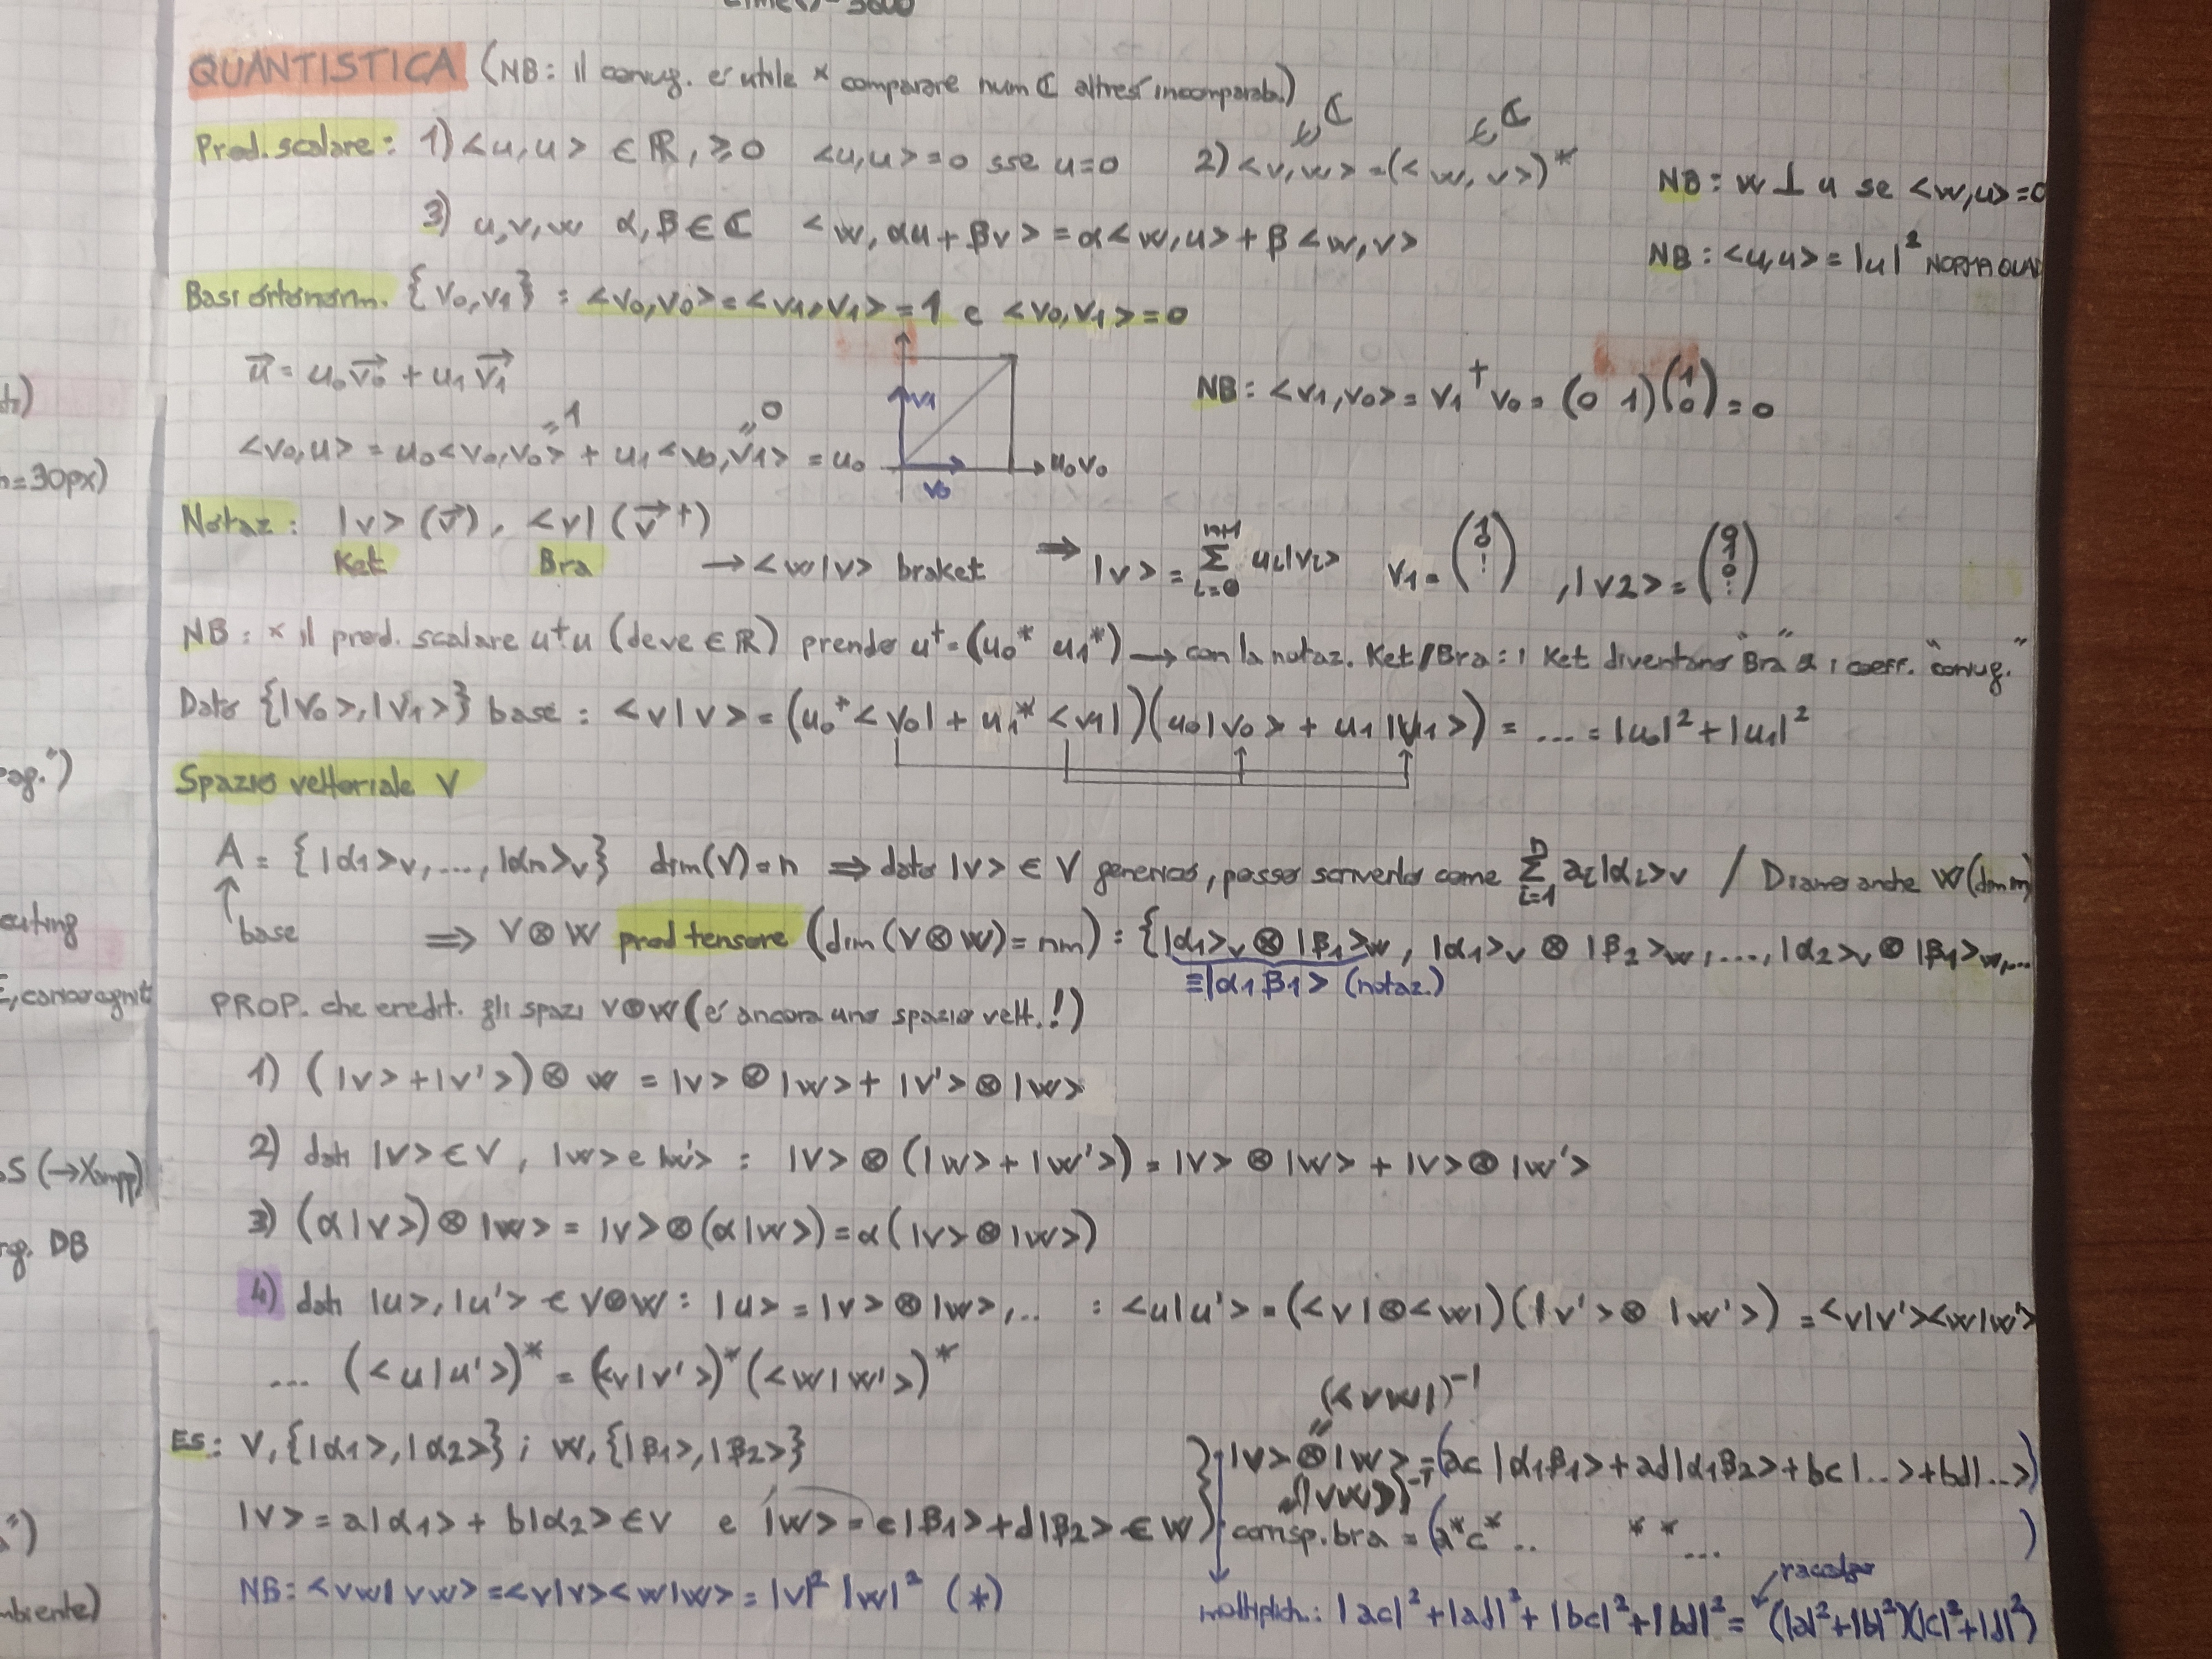 QUANTISTICA (NB: il coniug. é utile × comparare num ℂ altresí incomparab.)
Prod. scalare: 1) <u,u> ∈ ℝ, ≥0 <u,u>=0 sse u=0 2) <v,w> = (<w,v>)* ∈ℂ ∈ℂ
NB: w ⊥ u se <w,u>=0
3) u,v,w α,β ∈ ℂ <w, αu + βv> = α<w,u> + β<w,v>
NB: <u,u> = |u|² NORMA QUAD
Basi ortonorm. {v0,v1} : <v0,v0> = <v1,v1> = 1 e <v0,v1> = 0
u⃗ = u0v0⃗ + u1v1⃗
v1
NB: <v1,v0> = v1† v0 = (0 1)(1 0) = 0
<v0,u> = u0<v0,v0> + u1<v0,v1> = u0 =1 =0
u0v0
v0
Notaz: |v> (v⃗), <v| (v⃗†)
Ket Bra → <w|v> braket ⇒ |v> = Σ i=0 n+1 ui|vi> v1 = (1 0 ⋮), |v2> = (0 1 0 ⋮)
NB: × il prod. scalare u†u (deve ∈ ℝ) prendo u† = (u0* u1*) → con la notaz. Ket/Bra: i Ket diventano "Bra" & i coeff. "coniug."
Dato {|v0>,|v1>} base : <v|v> = (u0*<v0| + u1*<v1|)(u0|v0> + u1|v1>) = ... = |u0|² + |u1|²
Spazio vettoriale V
A = {|α1>v, ..., |αn>v} dim(V) = n ⇒ dato |v> ∈ V generico, posso scriverlo come Σ i=1 n ai|αi>v / Diamo anche W (dim m)
base ⇒ V⊗W prod tensore (dim(V⊗W) = nm) : {|α1>v ⊗ |β1>w, |α1>v ⊗ |β2>w, ..., |α2>v ⊗ |β1>w, ...
≡|α1β1> (notaz.)
PROP. che eredit. gli spazi V⊗W (é ancora uno spazio vett.!)
1) (|v>+|v'>)⊗ w = |v>⊗|w> + |v'>⊗|w>
2) dati |v> ∈ V, |w> e |w'> : |v>⊗(|w> + |w'>) = |v>⊗|w> + |v>⊗|w'>
3) (α|v>)⊗|w> = |v>⊗(α|w>) = α(|v>⊗|w>)
4) dati |u>,|u'> ∈ V⊗W : |u> = |v>⊗|w>, .. : <u|u'> = (<v|⊗<w|)(|v'>⊗|w'>) = <v|v'><w|w'>
... (<u|u'>)* = (<v|v'>)*(<w|w'>)*
(<vw|)⁻¹
ES: V, {|α1>,|α2>} ; W, {|β1>,|β2>}
|v>⊗|w> = (ac|α1β1> + ad|α1β2> + bc|..> + bd|..>)
(|vw>)⁻¹
|v> = a|α1> + b|α2> ∈ V e |w> = c|β1> + d|β2> ∈ W
corrisp. bra = (a*c* .. * * ... )
raccolgo
NB: <vw|vw> = <v|v><w|w> = |v|² |w|² (*)
moltiplich.: |ac|² + |ad|² + |bc|² + |bd|² = (|a|²+|b|²)(|c|²+|d|²)
n=30px)
ag.")
S (→Xampp)
DB